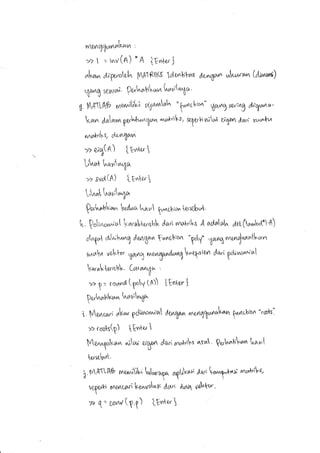 menggunakan :
>> I = inv(A) * A {Enter}
akan diperoleh MATRIKS Identitas dengan ukuran (dimensi)
yang sesuai. Perhatikan hasilnya.
g. MATLAB memiliki sejumlah "function" yang sering diguna-
kan dalam perhitungan matriks, seperti nilai eigen dari suatu
matriks, dengan
>> eig(A) {Enter}
Lihat hasilnya
>> svd(A) {Enter}
Lihat hasilnya
Perhatikan kedua hasil function tersebut.
h. Polinomial karakteristik dari matriks A adalah det(lambda*I-A)
dapat dihitung dengan Function "poly" yang menghasilkan
suatu vektor yang mengandung koefisien dari polinomial
karakteristik. Caranya :
>> p = round(poly(A)) {Enter}
Perhatikan hasilnya
i. Mencari akar polinomial dengan menggunakan function "roots".
>> roots(p) {Enter}
Merupakan nilai eigen dari matriks asal. Perhatikan hasil
tersebut.
j. MATLAB memiliki beberapa aplikasi dari komputasi matriks,
seperti mencari konvolusi dari dua vektor.
>> q = conv(p,p) {Enter}